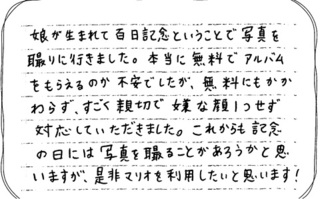 娘が生まれて百日記念ということで写真を
撮りに行きました。本当に無料でアルバム
をもらえるのか不安でしたが、無料にもかか
わらず、すごく親切で嫌な顔1つせず
対応していただきました。これからも記念
の日には写真を撮ることがあろうかと思
いますが、是非マリオを利用したいと思います!